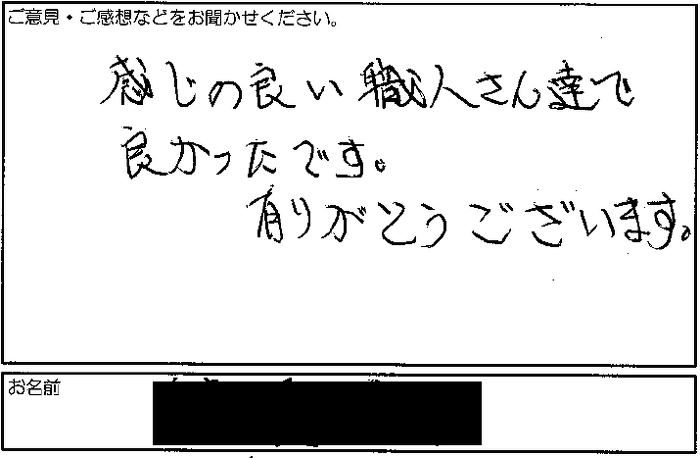 ご意見・ご感想などをお聞かせください。
感じの良い職人さん達で
良かったです。
有りがとうございます。
お名前